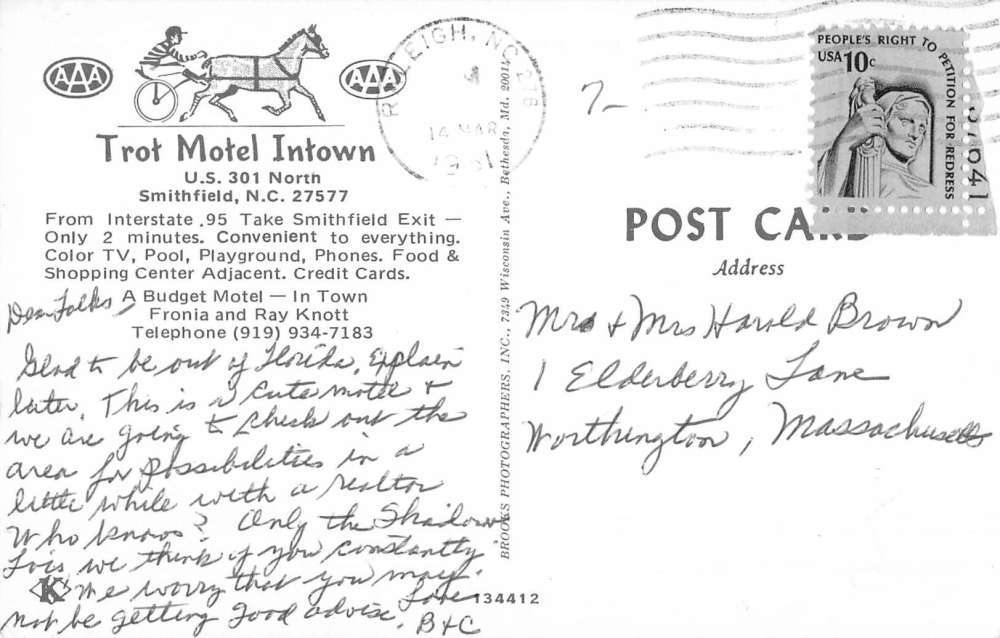 AAA
AAA
Trot Motel Intown
U.S. 301 North
Smithfield, N.C. 27577
From Interstate 95 Take Smithfield Exit —
Only 2 minutes. Convenient to everything.
Color TV, Pool, Playground, Phones. Food &
Shopping Center Adjacent. Credit Cards.
A Budget Motel — In Town
Fronia and Ray Knott
Telephone (919) 934-7183
Dear Folks,
Glad to be out of Florida, Explain
later. This is a cute motel &
we are going to check out the
area for possibilities in a
little while with a realtor
Who knows? Only the Shadow
Lois we think of you constantly.
We worry that you may
not be getting good advise.
Love
B+C
K
134412
BROOKS PHOTOGRAPHERS, INC., 7349 Wisconsin Ave., Bethesda, Md. 20014
RALEIGH, NC 276
14 MAR
1981
7-
PEOPLE'S RIGHT TO PETITION FOR REDRESS
USA 10c
37641
POST CARD
Address
Mr & Mrs Harold Brown
1 Elderberry Lane
Worthington, Massachusetts